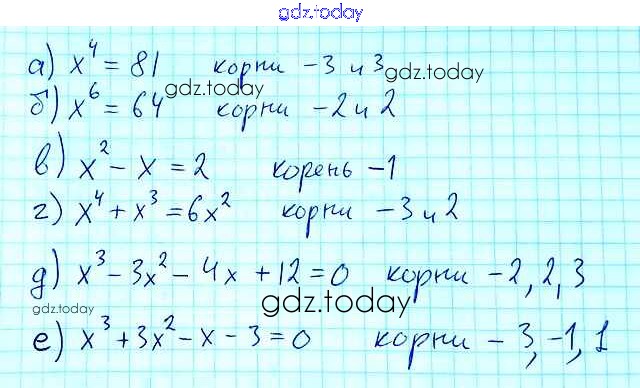 gdz.today
а) x⁴ = 81 корни -3 и 3 gdz.today
gdz.today
б) x⁶ = 64 корни -2 и 2
в) x² - x = 2 корень -1
г) x⁴ + x³ = 6x² корни -3 и 2
д) x³ - 3x² - 4x + 12 = 0 корни -2, 2, 3
gdz.today gdz.today
е) x³ + 3x² - x - 3 = 0 корни -3, -1, 1